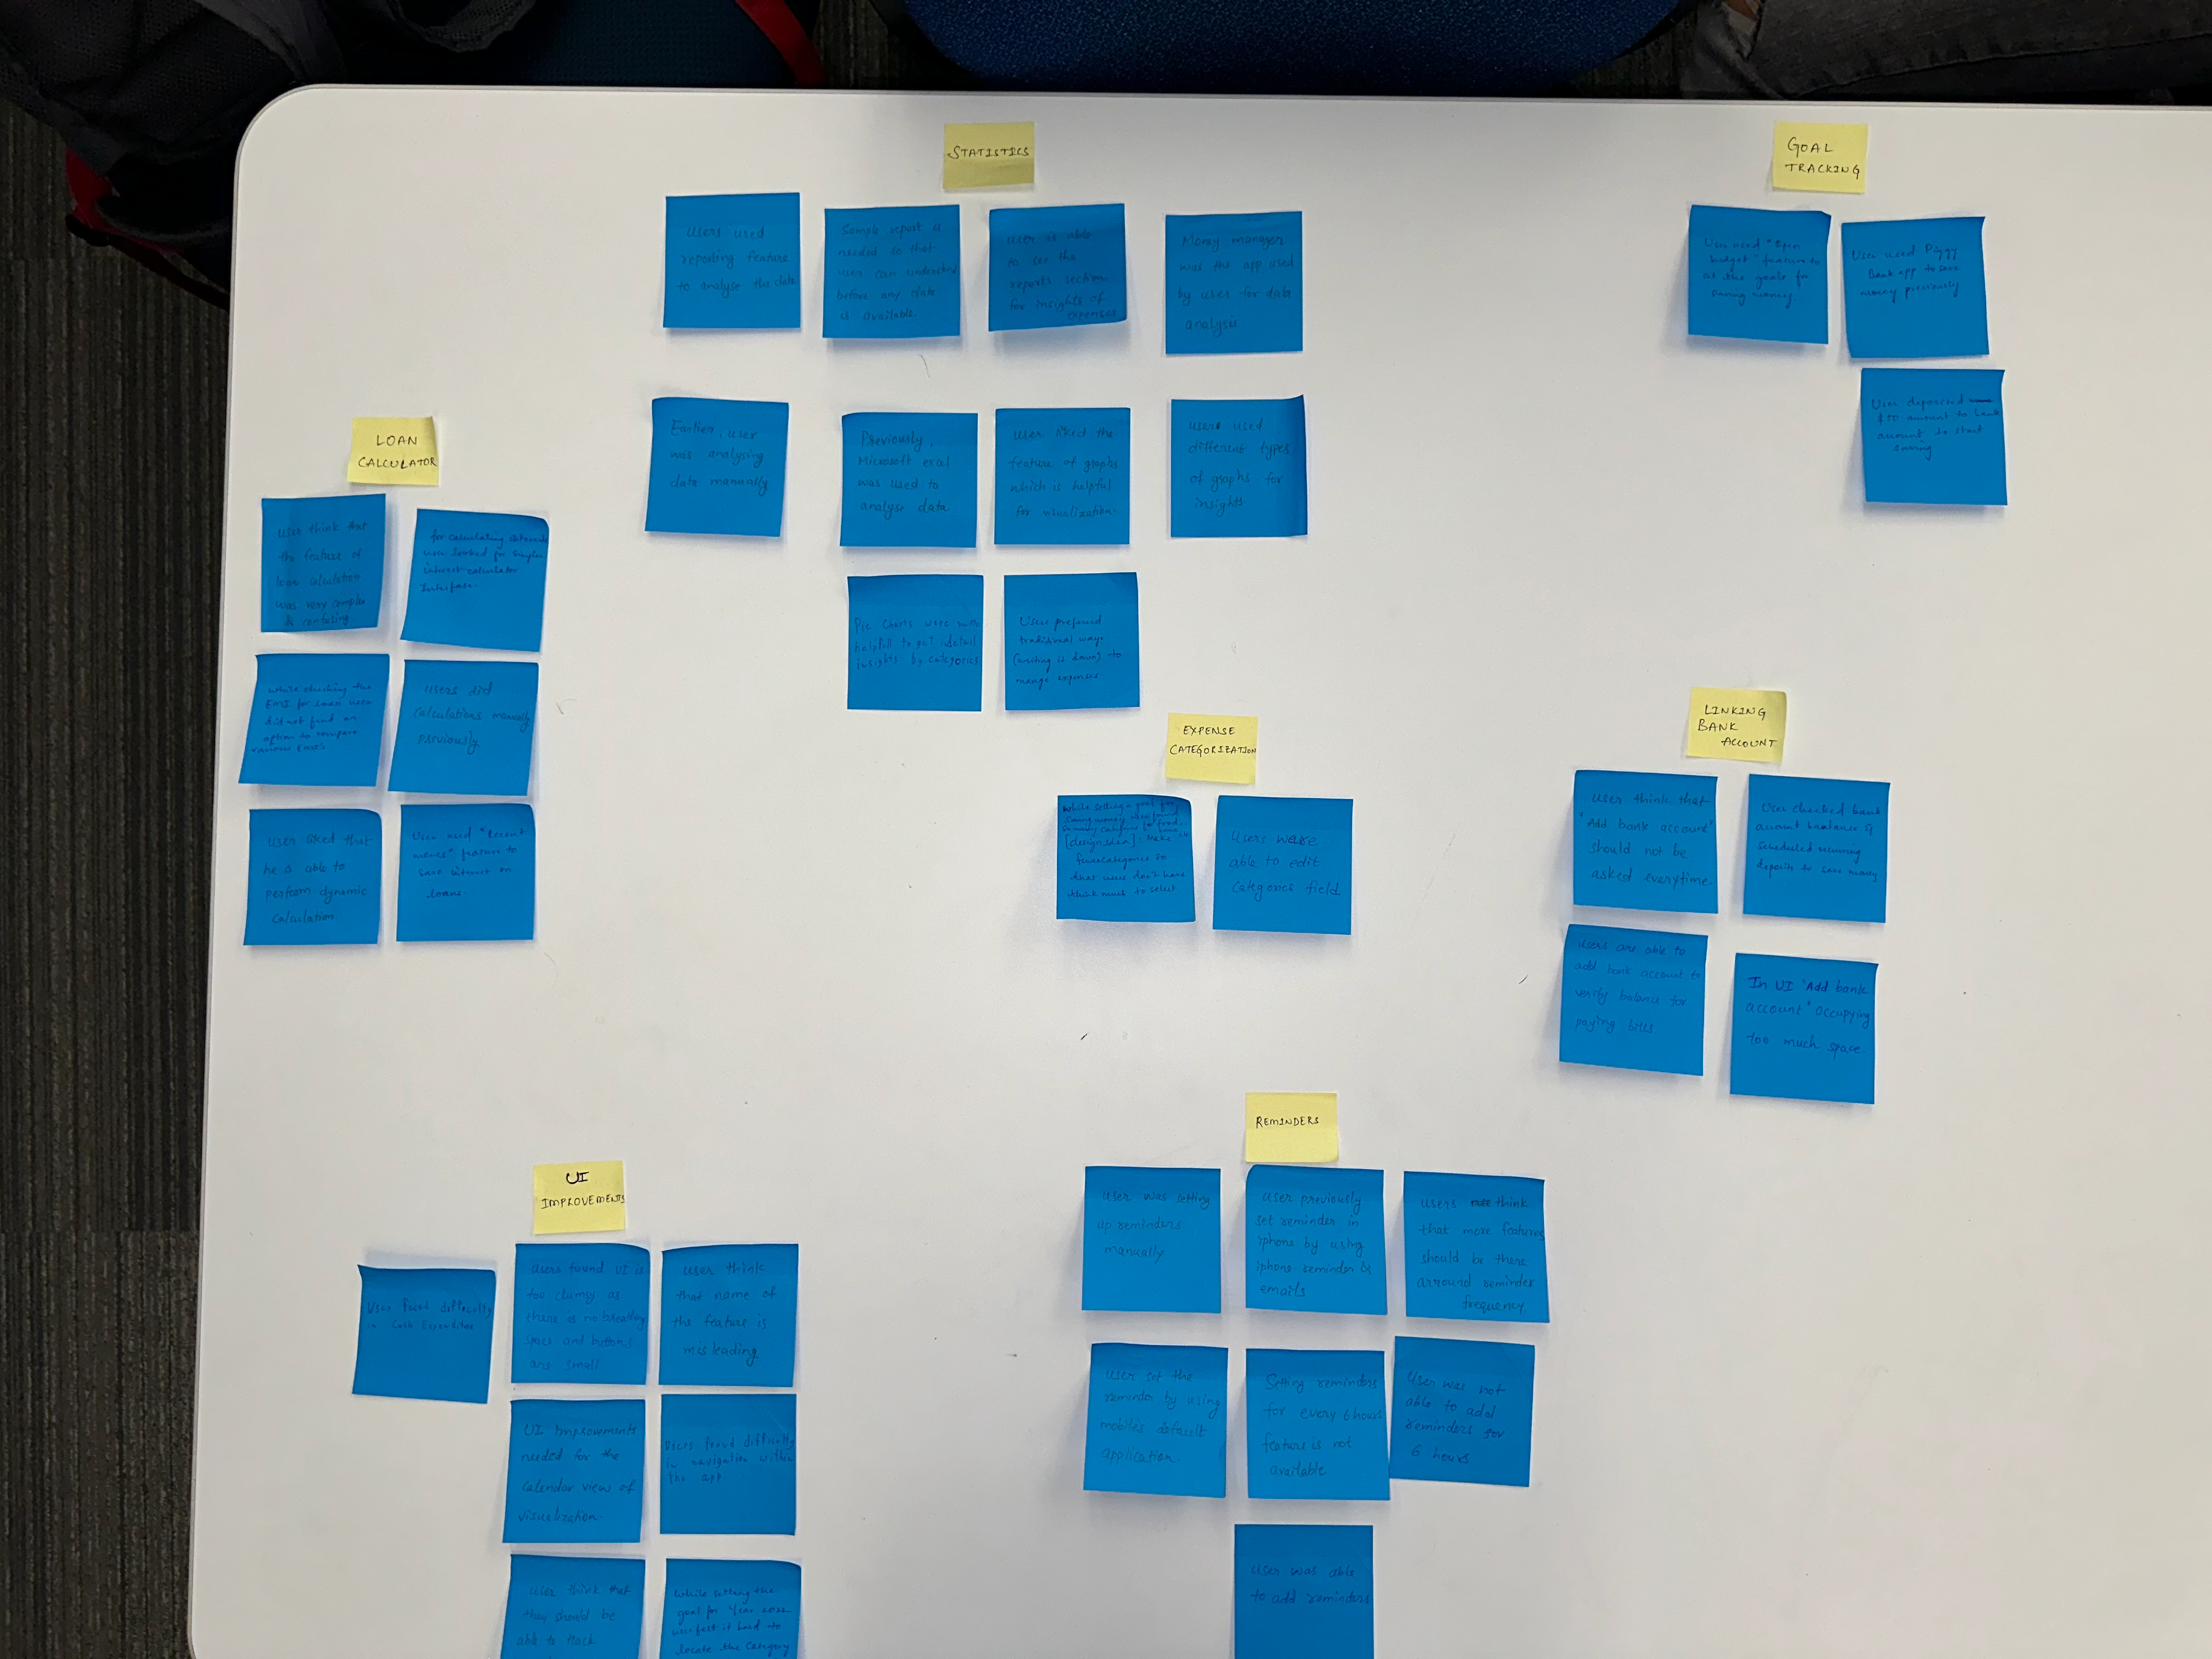 STATISTICS
users used
reporting feature
to analyse the data
Sample report is
needed so that
user can understand
before any data
is available.
user is able
to see the
reports section
for insights of
expenses
Money manager
was the app used
by user for data
analysis
Earlier, user
was analysing
data manually
Previously,
Microsoft excel
was used to
analyse data
user liked the
feature of graphs
which is helpful
for visualization.
users used
different types
of graphs for
insights.
Pie charts were
helpful to get
insights by categories
Users preferred
traditional ways
(writing it down) to
expenses
GOAL
TRACKING
User used
budget" feature to
the goals for
saving money.
User used Piggy
Bank app to save
money previously
User deposited
$50 amount to bank
account to start
saving
LOAN
CALCULATOR
user think that
the feature of
loan calculation
was very complex
& confusing
for calculating
user looked for
interest calculator
Interface.
while checking the
EMI for loans user
did not find an
option to compare
users did
calculations manually
previously
user liked that
he is able to
perform dynamic
calculation
User used
feature to
save interest on
loans.
EXPENSE
CATEGORIZATION
While setting a goal for
saving money user found
[design idea]: Make
categories so
that users don't have
think much to select
Users were
able to edit
categories field
LINKING
BANK
ACCOUNT
user think that
"Add bank account"
should not be
asked everytime.
User checked bank
account &
scheduled recurring
deposits to save money
users are able to
add bank account to
verify balance for
paying bills
In UI "Add bank
account" occupying
too much space.
REMINDERS
User was setting
up reminders
manually
user previously
set reminder in
iphone by using
iphone reminder &
emails
users think
that more features
should be there
arround reminder
frequency
user set the
reminder by using
mobiles default
application.
Setting reminders
for every 6 hours
feature is not
available
User was not
able to add
reminders for
6 hours
user was able
to add reminders
UI
IMPROVEMENTS
User faced difficulty
in Cash Expenditure
users found UI is
too clumsy as
there is no breathing
space and buttons
are small
user think
that name of
the feature is
misleading
UI Improvements
needed for the
Calendar view of
visualization.
Users faced difficulty
in navigation within
the app.
user think that
they should be
able to track
While setting the
goal for Year 2022
user felt it hard to
locate the category